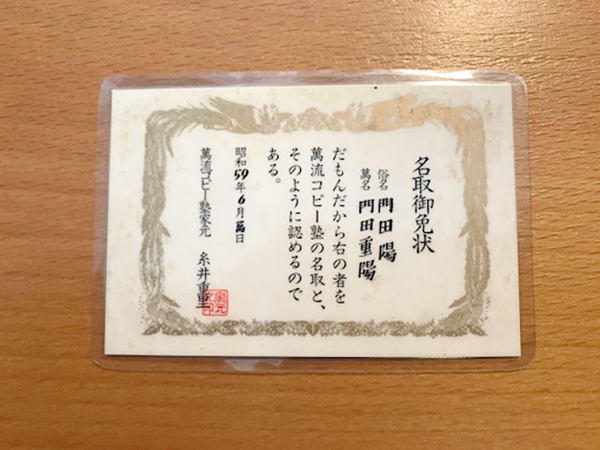 名取御免状
俗名 門田 陽
萬名 門田重陽
だもんだから右の者を
萬流コピー塾の名取と、
そのように認めるので
ある。
昭和59年6月萬日
萬流コピー塾家元 糸井重里